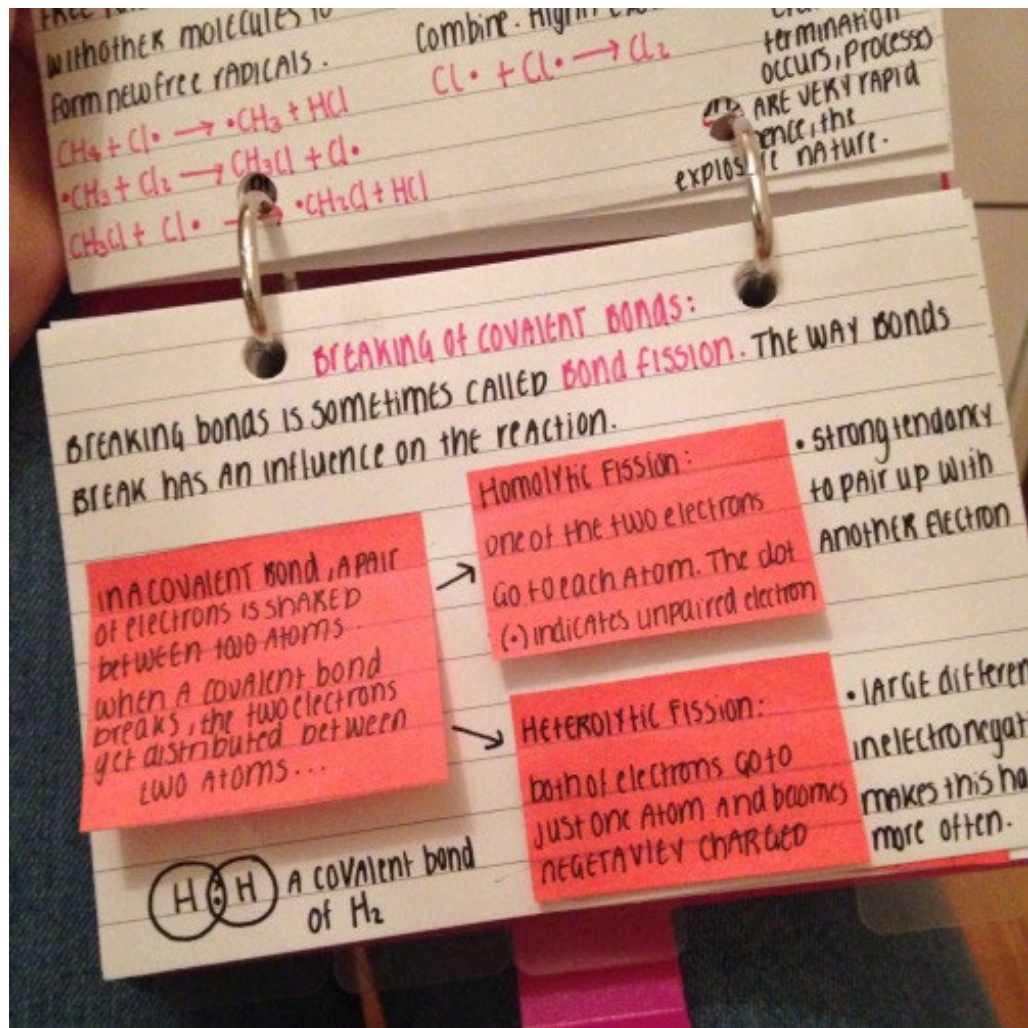 withother molecules to
form new free radicals.
CH₄ + Cl• → •CH₃ + HCl
•CH₃ + Cl₂ → CH₃Cl + Cl•
CH₃Cl + Cl• → •CH₂Cl + HCl
combine.
Cl• + Cl• → Cl₂
termination
occurs, processes
are very rapid
the
nature.
Breaking of covalent bonds:
Breaking bonds is sometimes called Bond fission. The way bonds
break has an influence on the reaction.
In a covalent bond, a pair
of electrons is shared
between two atoms.
when a covalent bond
breaks, the two electrons
get distributed between
two atoms...
Homolytic Fission:
one of the two electrons
go to each atom. The dot
(•) indicates unpaired electron
• strong tendancy
to pair up with
another electron
Heterolytic Fission:
both of electrons go to
just one atom and bcomes
negetavley charged
• large
in
makes this
more often.
H : H
A covalent bond
of H₂